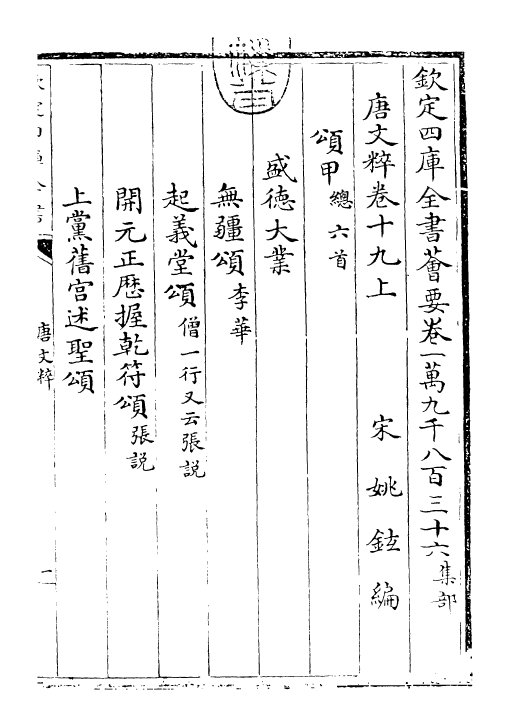 欽定四庫全書薈要卷一萬九千八百三十六集部
唐文粹卷十九上　宋　姚鉉編
頌甲總六首
盛德大業
無疆頌李華
起義堂頌僧一行又云張説
開元正歷握乾符頌張説
上黨舊宫述聖頌
欽定四庫全書
唐文粹
一